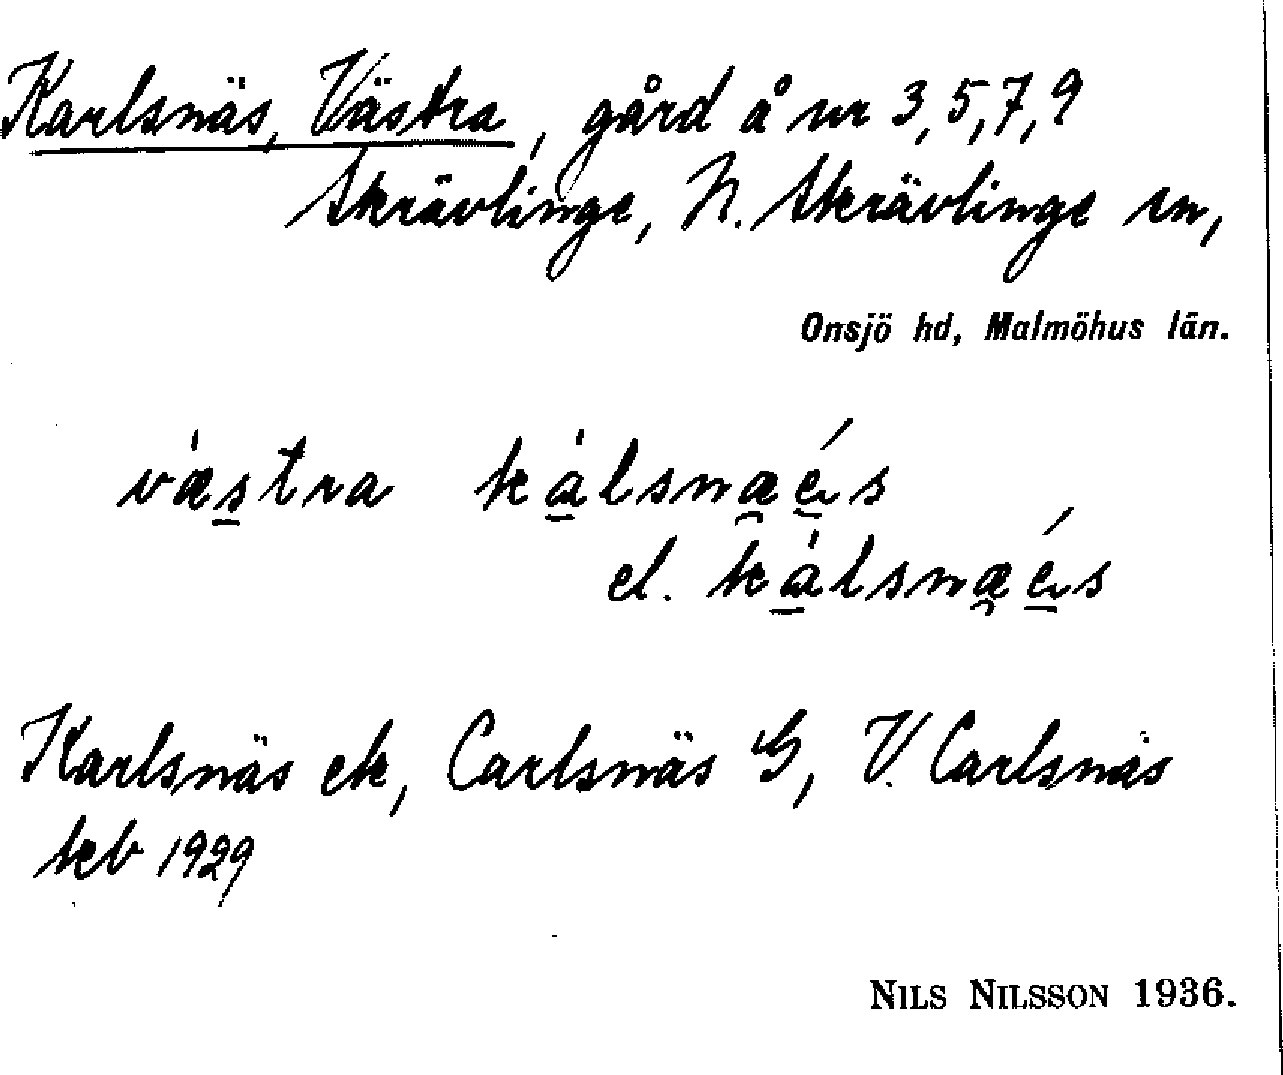 Karlsnäs, Västra, gård å nr 3, 5, 7, 9
Skrävlinge, N. Skrävlinge sn,
Onsjö hd, Malmöhus län.
væstra kàlsnæés
el. kàlsnæés
Karlsnäs ek, Carlsnäs G, V. Carlsnäs
skb 1929
NILS NILSSON 1936.